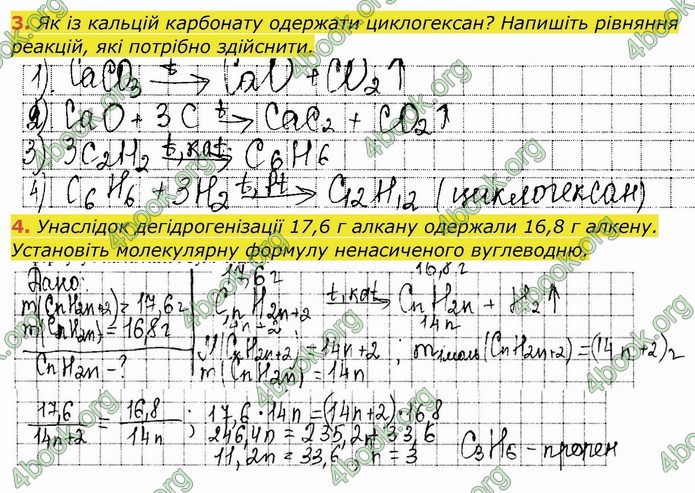 3. Як із кальцій карбонату одержати циклогексан? Напишіть рівняння
реакцій, які потрібно здійснити.
1) CaCO3 t→ CaO + CO2↑
2) CaO + 3C t→ CaC2 + CO2↑
3) 3C2H2 t, кат→ C6H6
4) C6H6 + 3H2 t, Pt→ C12H12 (циклогексан)
4. Унаслідок дегідрогенізації 17,6 г алкану одержали 16,8 г алкену.
Установіть молекулярну формулу ненасиченого вуглеводню.
Дано:
m(CnH2n+2) = 17,6г
m(CnH2n) = 16,8г
CnH2n - ?
17,6г 16,8г
CnH2n+2 t, кат→ CnH2n + H2↑
14n+2 14n
M(CnH2n+2) = 14n+2 ; m1моль(CnH2n+2) = (14n+2)г
m(CnH2n) = 14n
17,6/14n+2 = 16,8/14n ; 17,6·14n = (14n+2)·16,8
246,4n = 235,2n + 33,6
11,2n = 33,6 , n = 3
C3H6 - пропен
4book.org